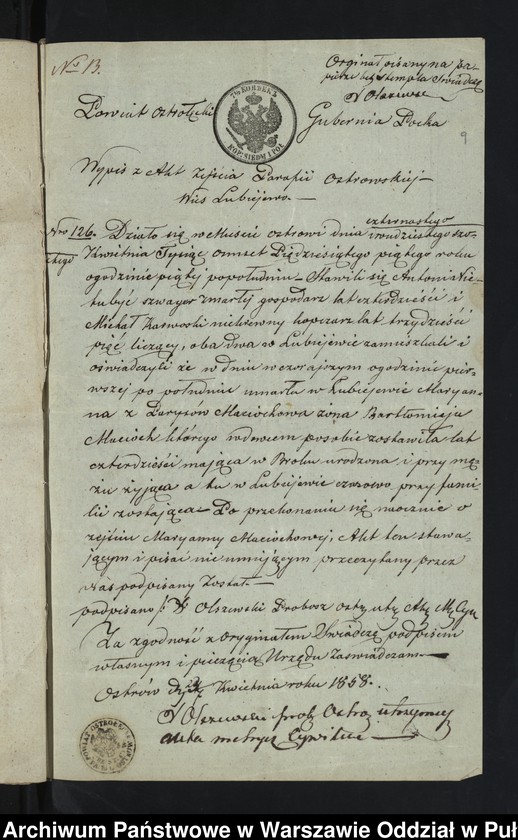 No 13.
Orginał pisany na pa-
pierze bez stempla Świadczę
Olszewski
9
7½ KOPIEIEK S.
KOP. SIEDM I PÓŁ
Powiat Ostrołęcki Gubernia Płocka
Wypis z Akt Zejścia Parafii Ostrowskiej
Wieś Lubiejewo.
czternastego
Nro 126. Działo się w Mieście Ostrowi dnia dwudziestego szó-
stego
Kwietnia Tysiąc ośmset Pięćdziesiątego piątego roku
o godzinie piątej popołudniu – Stawili się Antoni Nie-
tubyć szwagier zmarłej gospodarz lat czterdzieści i
Michał Karwoski niekrewny kopczarz lat trzydzieści
pięć liczący, oba dwa w Lubiejewie zamieszkali i
oświadczyli że w dniu wczorajszym o godzinie pier-
wszej po południu umarła w Lubiejewie Maryan-
na z Maciochowa żona Bartłomieja
Macioch którego wdowcem po sobie zostawiła lat
czterdzieści mająca w Broku urodzona i przy mę-
żu żyjąca a tu w Lubiejewie czasowo przy fami-
lii zostająca – Po przekonaniu się naocznie o
zejściu Maryanny Maciochowej, Akt ten stawa-
jącym i pisać nie umiejącym przeczytany przez
Nas podpisany został. –
podpisano /: Olszewski Proboszcz
Za zgodność z oryginałem Świadczę podpisem
własnym i pieczęcią Urzędu Zaświadczam. –
Ostrów Kwietnia roku 1858.
Olszewski prob. Ostro. utrzymujący
akta Cywilne
Archiwum Państwowe w Warszawie Oddział w Puł